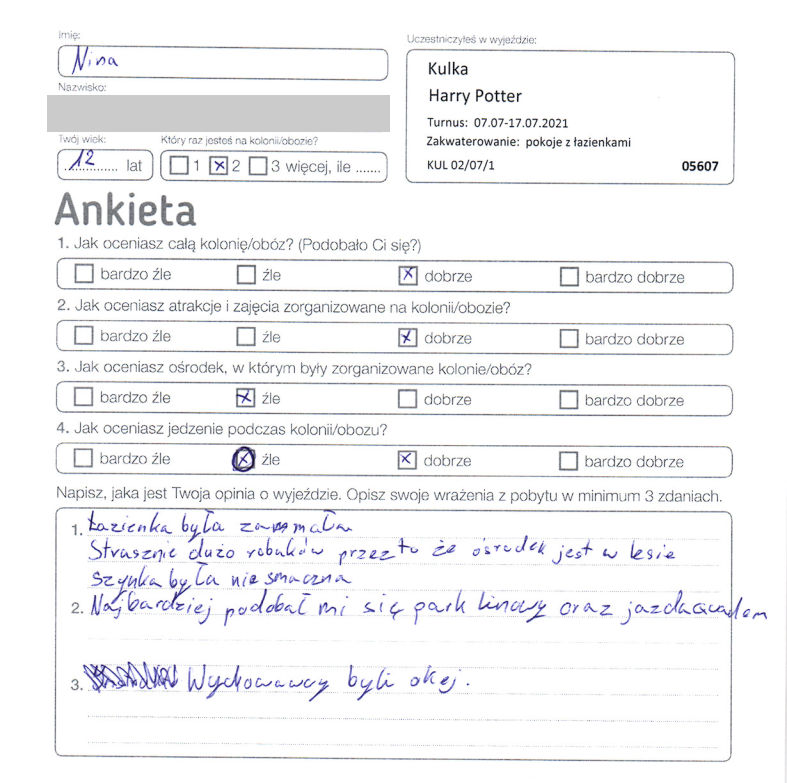 Imię:
Nina
Uczestniczyłeś w wyjeździe:
Kulka
Harry Potter
Turnus: 07.07-17.07.2021
Zakwaterowanie: pokoje z łazienkami
KUL 02/07/1 05607
Nazwisko:
Twój wiek:
12 lat
Który raz jesteś na kolonii/obozie?
1 2 3 więcej, ile .......
Ankieta
1. Jak oceniasz całą kolonię/obóz? (Podobało Ci się?)
bardzo źle źle dobrze bardzo dobrze
2. Jak oceniasz atrakcje i zajęcia zorganizowane na kolonii/obozie?
bardzo źle źle dobrze bardzo dobrze
3. Jak oceniasz ośrodek, w którym były zorganizowane kolonie/obóz?
bardzo źle źle dobrze bardzo dobrze
4. Jak oceniasz jedzenie podczas kolonii/obozu?
bardzo źle źle dobrze bardzo dobrze
Napisz, jaka jest Twoja opinia o wyjeździe. Opisz swoje wrażenia z pobytu w minimum 3 zdaniach.
1. Łazienka była za mała
Strasznie dużo robaków przez to że ośrodek jest w lesie
szynka była nie smaczna
2. Najbardziej podobał mi się park linowy oraz jazda quadem
3. Wychowawcy byli okej.